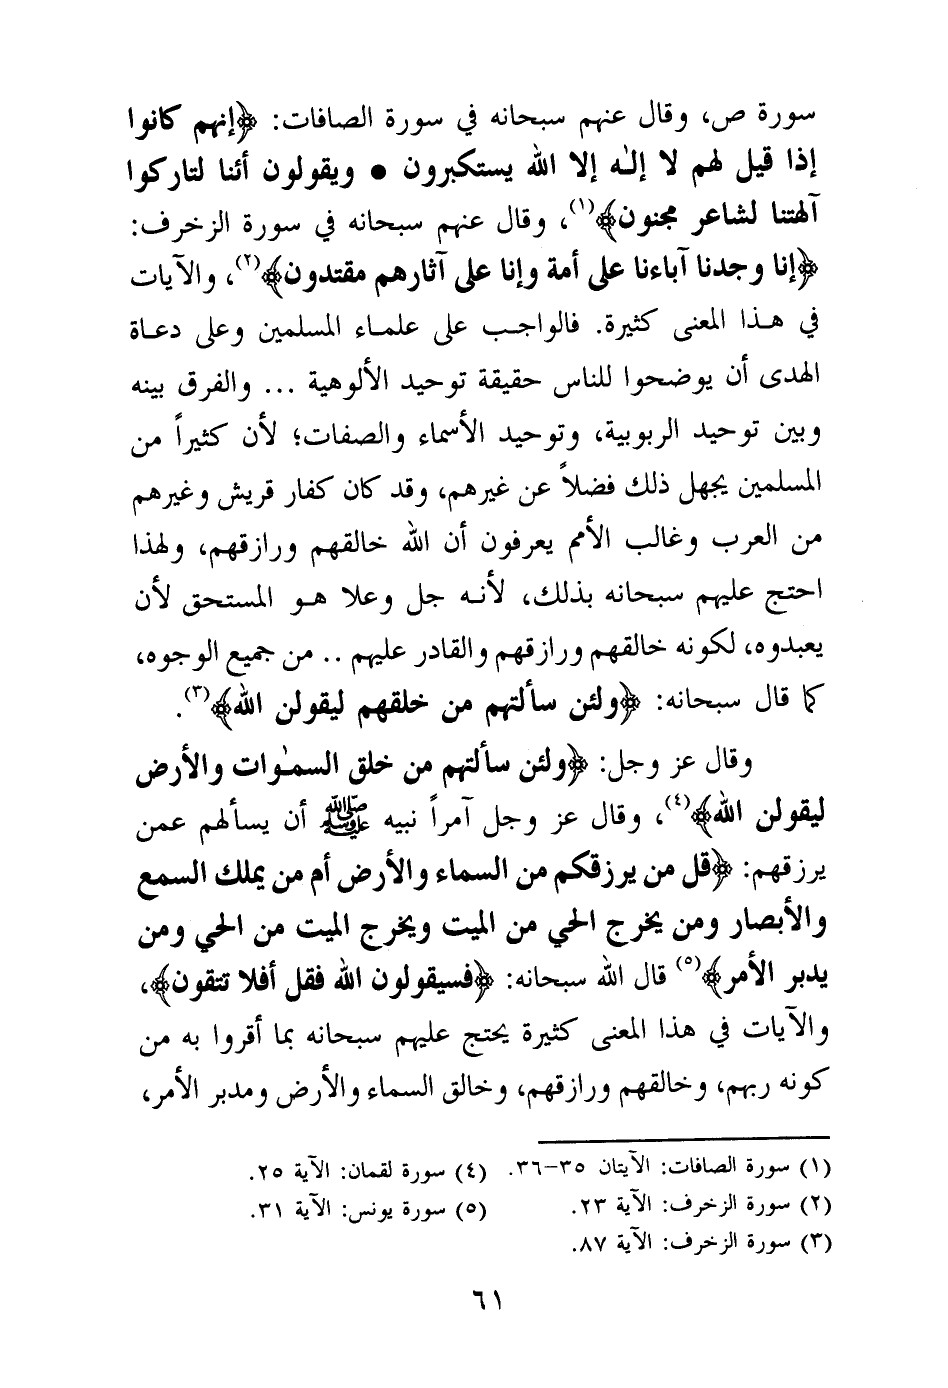 سورة ص، وقال عنهم سبحانه في سورة الصافات: ﴿إنهم كانوا
إذا قيل لهم لا إلٰه إلا الله يستكبرون • ويقولون أئنا لتاركوا
آلهتنا لشاعر مجنون﴾(١)، وقال عنهم سبحانه في سورة الزخرف:
﴿إنا وجدنا آباءنا على أمة وإنا على آثارهم مقتدون﴾(٢)، والآيات
في هذا المعنى كثيرة. فالواجب على علماء المسلمين وعلى دعاة
الهدى أن يوضحوا للناس حقيقة توحيد الألوهية ... والفرق بينه
وبين توحيد الربوبية، وتوحيد الأسماء والصفات؛ لأن كثيراً من
المسلمين يجهل ذلك فضلاً عن غيرهم، وقد كان كفار قريش وغيرهم
من العرب وغالب الأمم يعرفون أن الله خالقهم ورازقهم، ولهذا
احتج عليهم سبحانه بذلك، لأنه جل وعلا هو المستحق لأن
يعبدوه، لكونه خالقهم ورازقهم والقادر عليهم .. من جميع الوجوه،
كما قال سبحانه: ﴿ولئن سألتهم من خلقهم ليقولن الله﴾(٣).
وقال عز وجل: ﴿ولئن سألتهم من خلق السمٰوات والأرض
ليقولن الله﴾(٤)، وقال عز وجل آمراً نبيه ﷺ أن يسألهم عمن
يرزقهم: ﴿قل من يرزقكم من السماء والأرض أم من يملك السمع
والأبصار ومن يخرج الحي من الميت ويخرج الميت من الحي ومن
يدبر الأمر﴾(٥) قال الله سبحانه: ﴿فسيقولون الله فقل أفلا تتقون﴾،
والآيات في هذا المعنى كثيرة يحتج عليهم سبحانه بما أقروا به من
كونه ربهم، وخالقهم ورازقهم، وخالق السماء والأرض ومدبر الأمر،
(١) سورة الصافات: الآيتان ٣٥-٣٦. (٤) سورة لقمان: الآية ٢٥.
(٢) سورة الزخرف: الآية ٢٣. (٥) سورة يونس: الآية ٣١.
(٣) سورة الزخرف: الآية ٨٧.
٦١